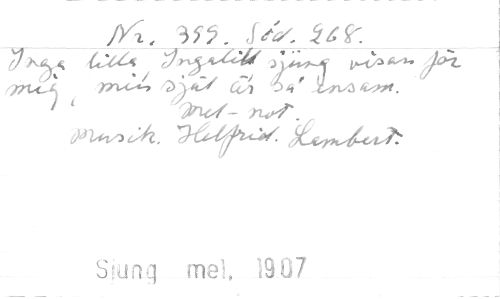 Nr. 399. Söd. 268.
Inga lilla Ingalill sjung visan för
mig, min själ är så ensam.
Mel-not.
Musik. Helfrid. Lambert.
Sjung mel, 1907